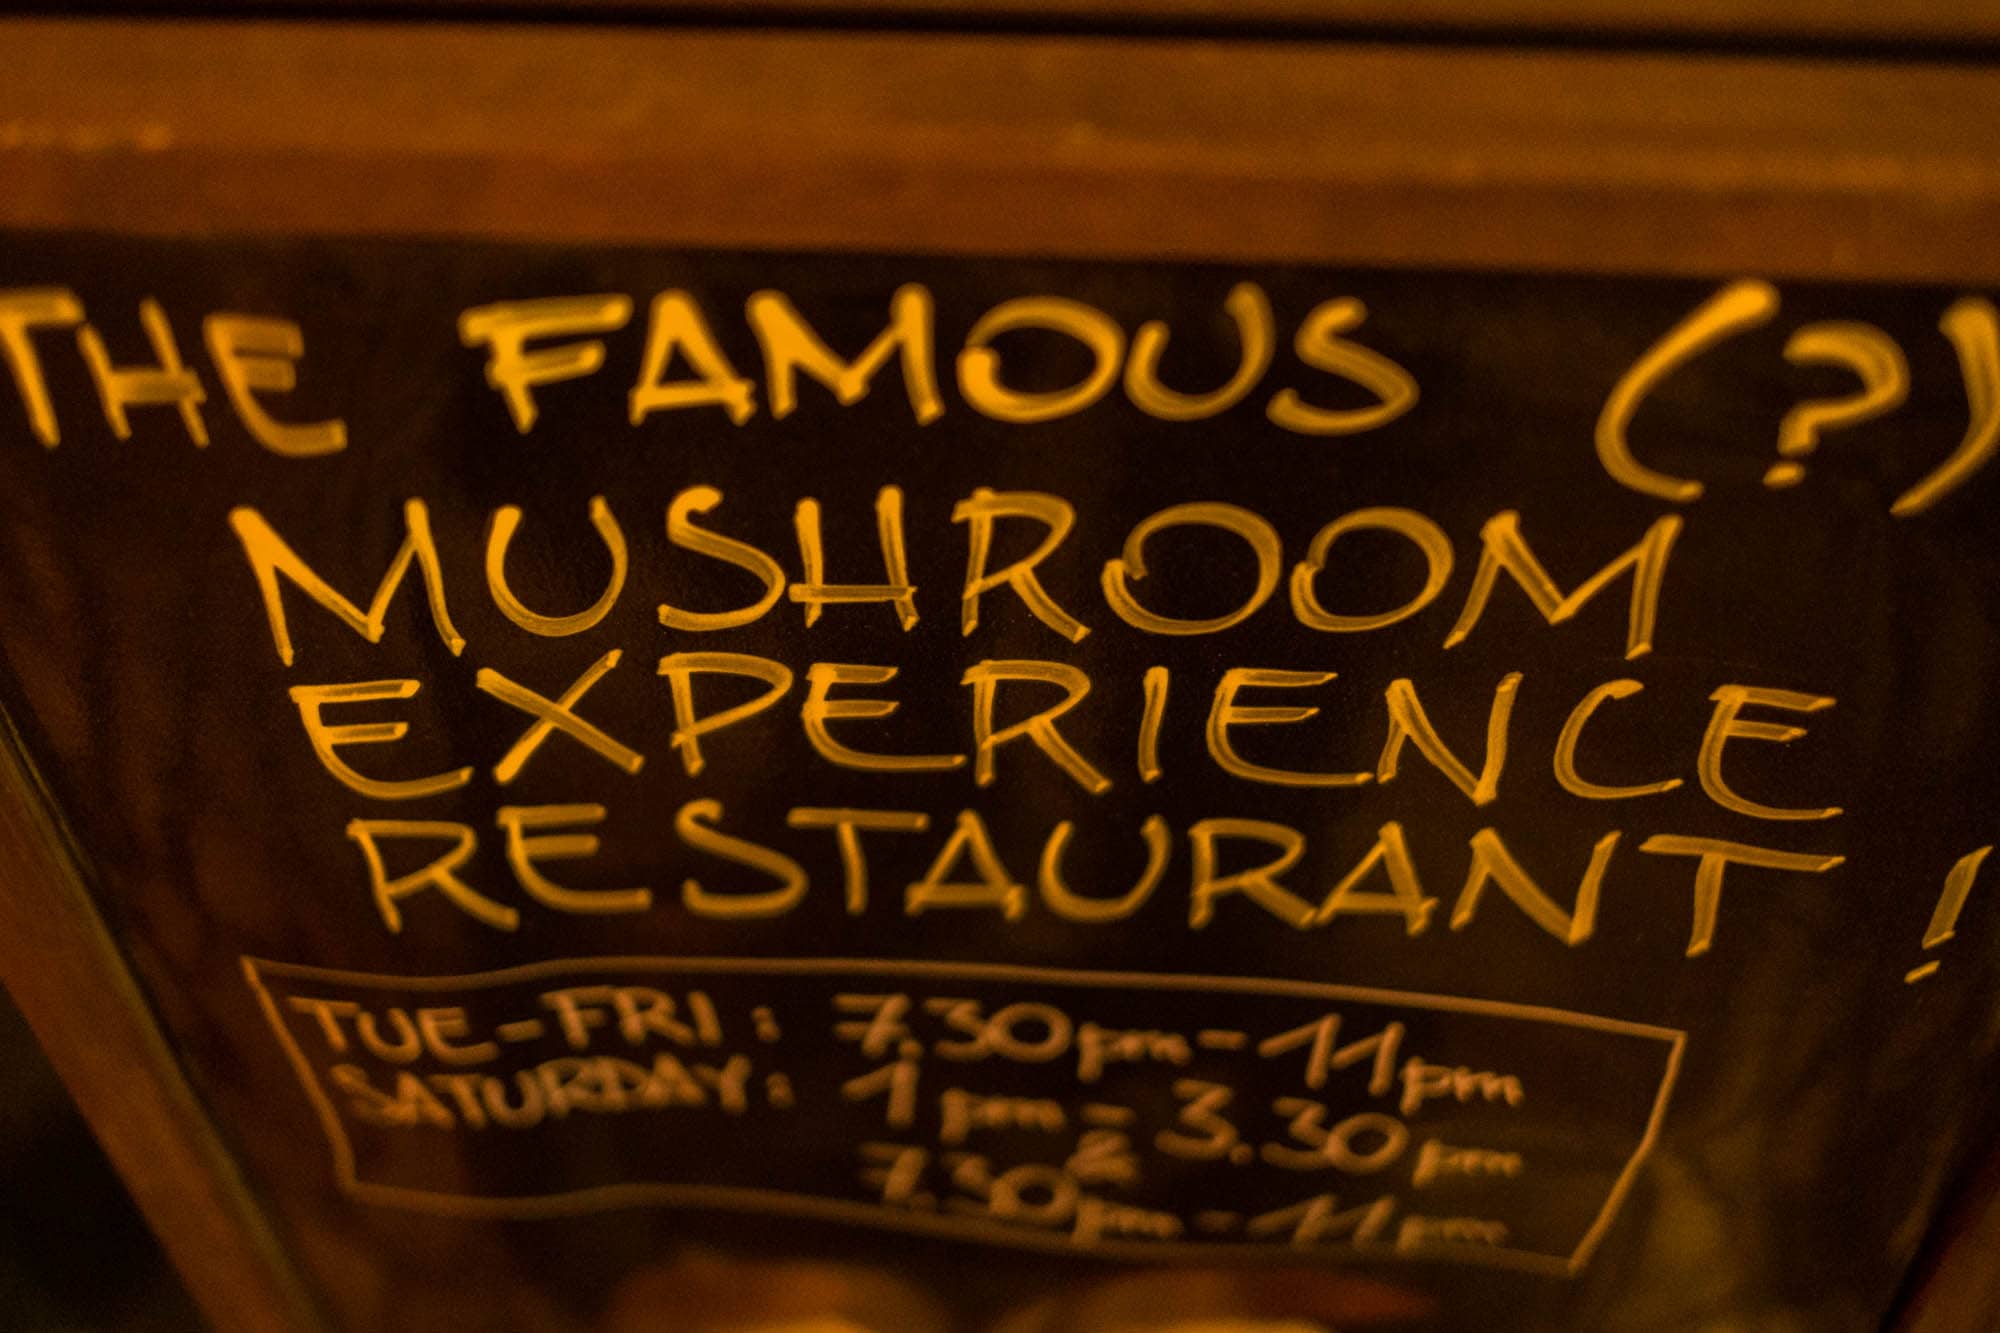 THE FAMOUS (?)
MUSHROOM
EXPERIENCE
RESTAURANT !
TUE-FRI: 7.30pm-11pm
SATURDAY: 1pm-3.30pm
&
7.30pm-11pm